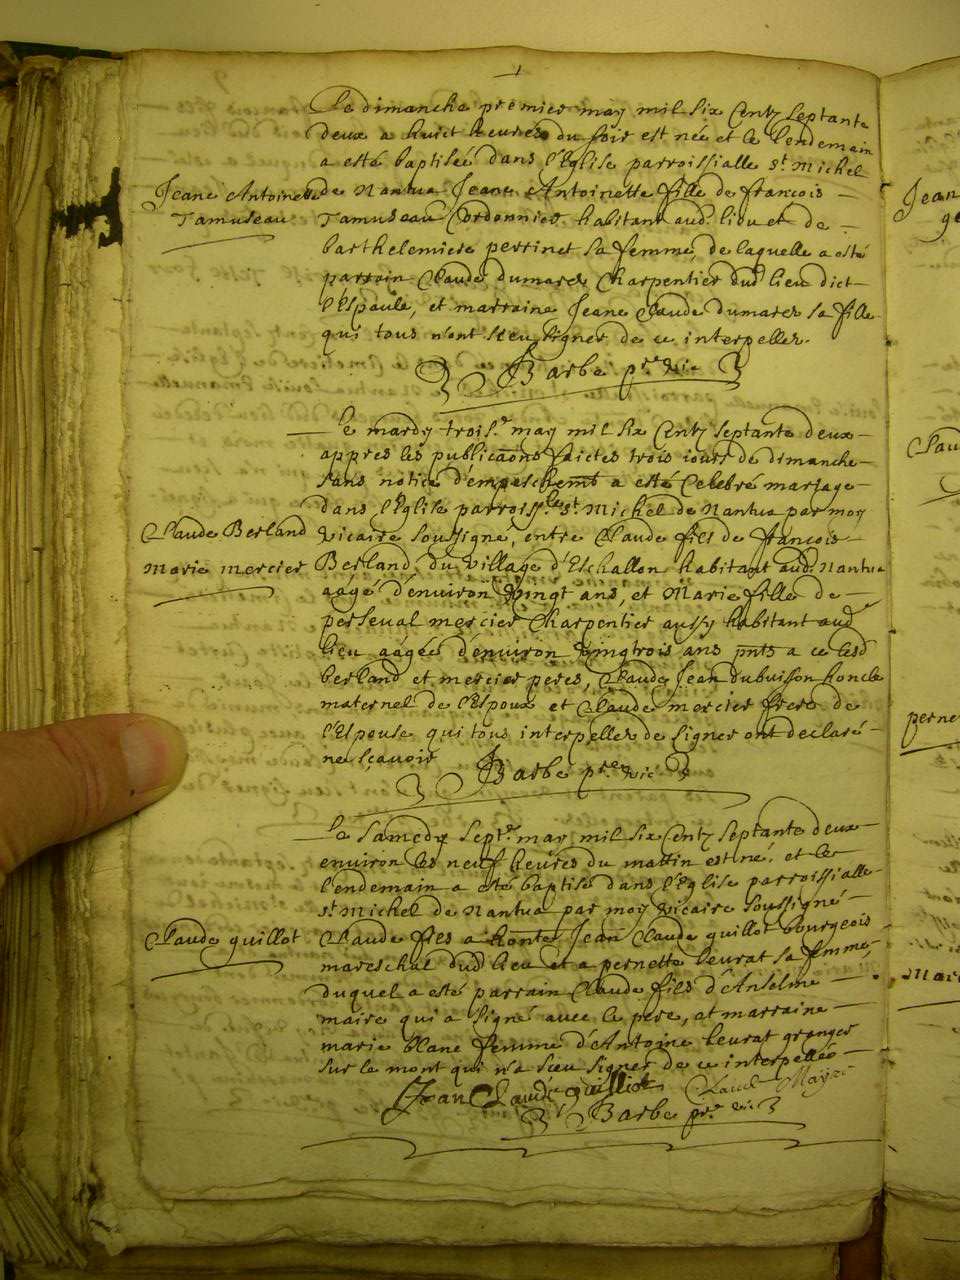 Le dimanche premier may mil six centz septante
deux a huict heures du soir est née et le lendemain
a esté baptisée dans l'Eglise parroissialle st Michel
Jeane Antoinette
de Nantua Jeane Antoinette fille de francois
Tamuseau
Tamuseau Cordonnier habitant aud. lieu et de
barthelemiere perrinet sa femme, de laquelle a esté
parrain Claude dumarex Charpentier dud lieu dict
l'Espaule, et marraine Jeane Claude dumarex sa fille
qui tous n'ont sceu signer de ce interpellez.
Barbe ptre vic
Le mardy trois.e may mil six centz septante deux
appres les publicaons faictes trois iours de dimanche
sans notice d'empeschemt a esté celebré mariage
dans l'Eglise parroiss.le st Michel de Nantua par moy
Claude Berland
vicaire soussigné, entre Claude fils de francois
Marie mercier
Berland du village d'Eschallon habitant aud. Nantua
aagé d'environ vingt ans, et Marie fille de
perseval mercier Charpentier aussy habitant aud
lieu aagée d'environ vingtrois ans pnts a ce lesd
berland et mercier peres, Claude Jean dubuisson honcle
maternel de l'Espoux et Claude mercier frere de
l'Espouse qui tous interpellez de signer ont declaré
ne sçavoir
Barbe ptre vic
Le Samedy sept.e may mil six centz septante deux
environ les neuf heures du mattin est né, et le
lendemain a esté baptisé dans l'Eglise parroissialle
st Michel de Nantua par moy vicaire soussigné
Claude quillot
Claude fils a honte Jean Claude quillot bourgeois
mareschal dud lieu et a pernette leurat sa femme,
duquel a esté parrain Claude fils d'Anselme
maire qui a signé avec le pere, et marraine
marie blanc femme d'Antoine leurat granger
sur le mont qui n'a sceu signer de ce interpellée
Jean Claude quilliot Claude Mayre
Barbe ptre vic
Jean
perne
Mari